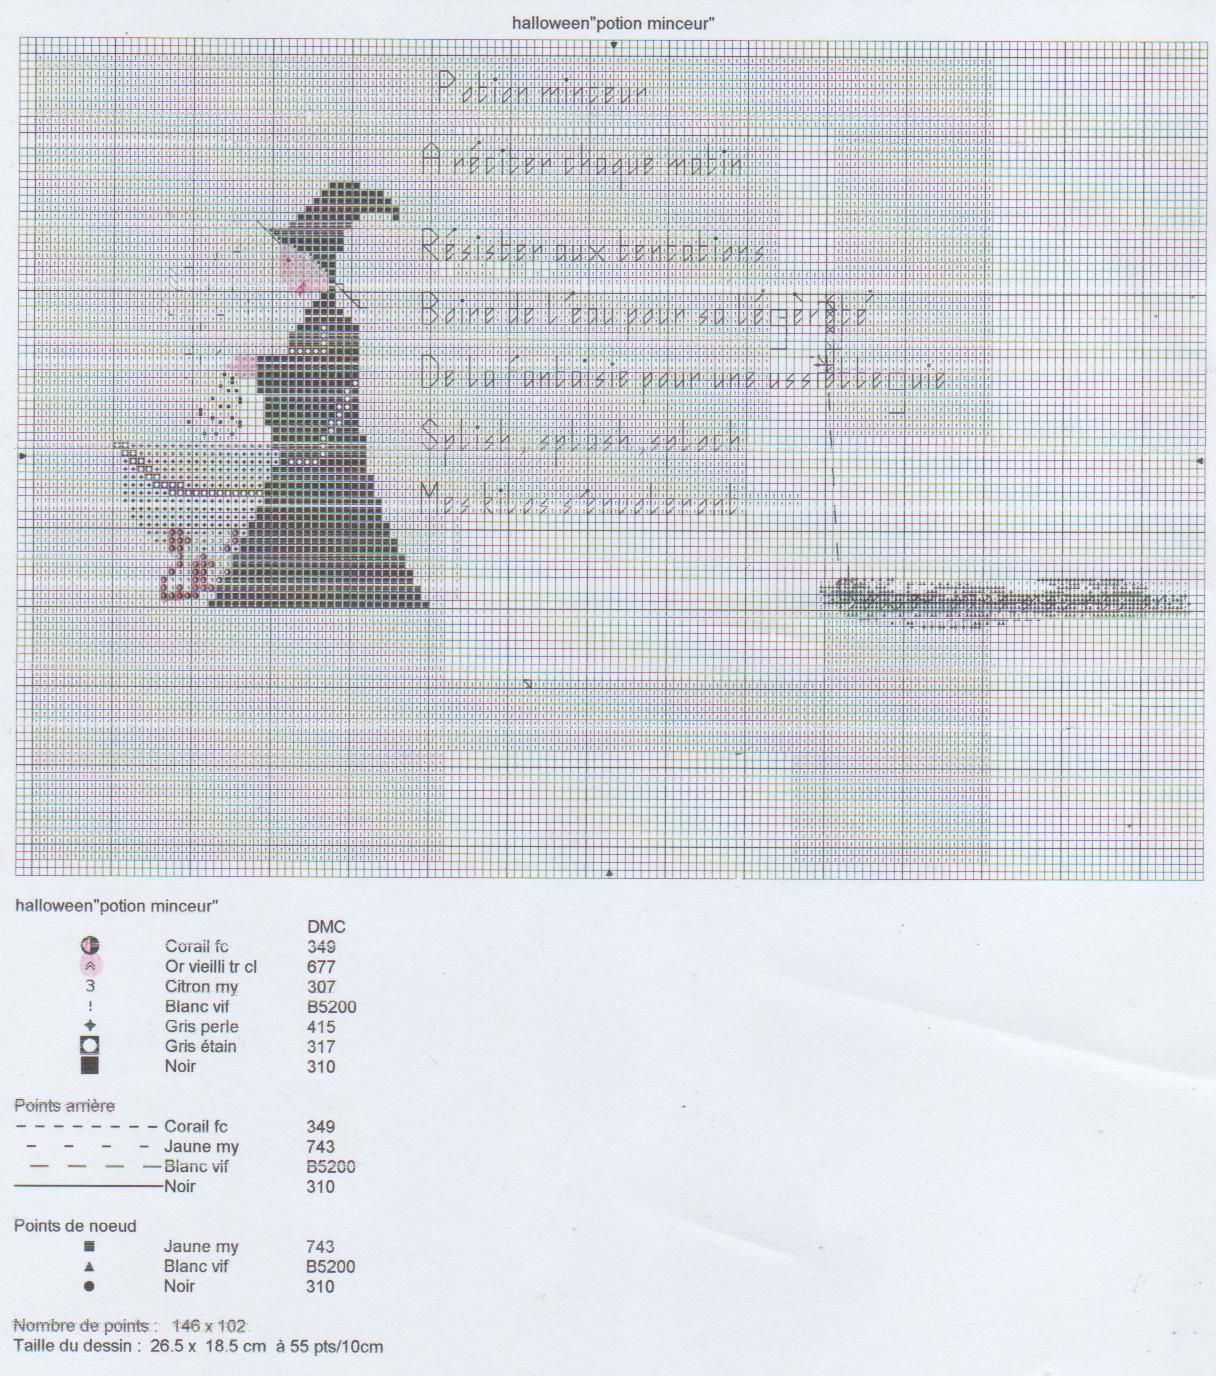 halloween"potion minceur"
Potion minceur
A réciter chaque matin
Résister aux tentations
Boire de l'eau pour sa légèreté
De la fantaisie pour une assiette gaie
Splish, splash, splach
Mes kilos s'envoleront
halloween"potion minceur"
DMC
Corail fc 349
Or vieilli tr cl 677
3 Citron my 307
! Blanc vif B5200
Gris perle 415
Gris étain 317
Noir 310
Points arrière
Corail fc 349
Jaune my 743
Blanc vif B5200
Noir 310
Points de noeud
Jaune my 743
Blanc vif B5200
Noir 310
Nombre de points : 146 x 102
Taille du dessin : 26.5 x 18.5 cm à 55 pts/10cm